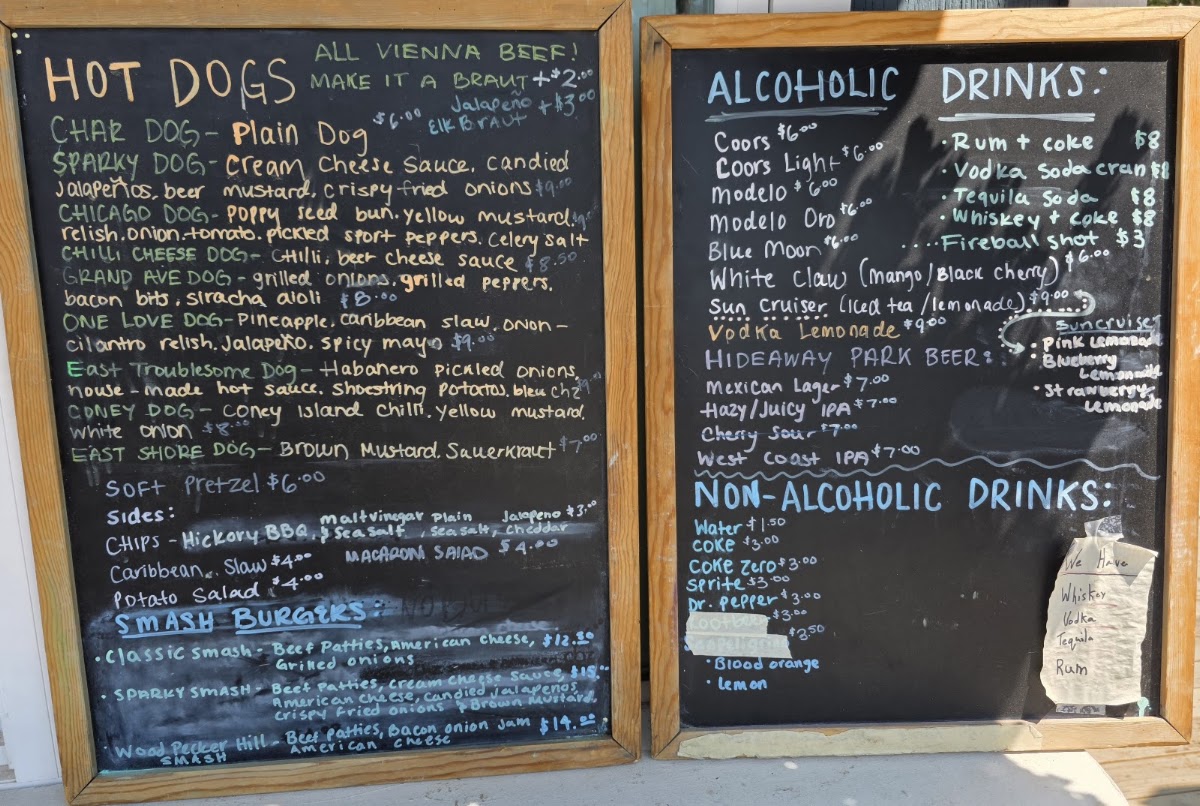 HOT DOGS
ALL VIENNA BEEF!
MAKE IT A BRAUT + $2.00
Jalapeño
Elk Braut + $3.00
CHAR DOG - Plain Dog $6.00
SPARKY DOG - Cream Cheese Sauce, Candied
Jalapeños, beer mustard, crispy fried onions $9.00
CHICAGO DOG - Poppy seed bun, yellow mustard,
relish, onion, tomato, pickled sport peppers, Celery salt
CHILLI CHEESE DOG - Chilli, beer cheese sauce $8.50
GRAND AVE DOG - grilled onions, grilled peppers,
bacon bits, siracha aioli $8.00
ONE LOVE DOG - Pineapple, caribbean slaw, onon-
cilantro relish, Jalapeño, spicy mayo $9.00
East Troublesome Dog - Habanero pickled onions,
house-made hot sauce, Shoestring potatos, bleu
CONEY DOG - Coney Island chili, yellow mustard,
white onion $8.00
EAST SHORE DOG - Brown Mustard, Sauerkraut $7.00
Soft Pretzel $6.00
Sides:
CHIPS - Hickory BBQ, malt vinegar & Sea salt, Plain sea salt, Jalapeno cheddar $3.00
Caribbean Slaw $4.00 MACARONI SALAD $4.00
Potato Salad $4.00
SMASH BURGERS:
• Classic Smash - Beef Patties, American cheese, $12.50
Grilled onions
• SPARKY SMASH - Beef Patties, Cream Cheese Sauce, $15.00
American cheese, Candied Jalapeños,
Crispy Fried Onions & Brown Mustard
• Wood Pecker Hill - Beef Patties, Bacon onion Jam $14.00
SMASH American cheese
ALCOHOLIC DRINKS:
Coors $6.00
Coors Light $6.00
Modelo $6.00
Modelo Oro $6.00
Blue Moon $6.00
White Claw (Mango/Black cherry) $6.00
Sun Cruiser (Iced tea/lemonade) $9.00
Vodka Lemonade $9.00
• Rum + coke $8
• Vodka Soda cran $8
• Tequila Soda $8
• Whiskey + Coke $8
.... Fireball Shot $3
Suncruiser
• Pink Lemonade
• Blueberry
Lemonade
• Strawberry
Lemonade
HIDEAWAY PARK BEER:
Mexican Lager $7.00
Hazy/Juicy IPA $7.00
Cherry Sour $7.00
West Coast IPA $7.00
NON-ALCOHOLIC DRINKS:
Water $1.50
Coke $3.00
Coke Zero $3.00
Sprite $3.00
Dr. Pepper $3.00
$3.00
$3.50
• Blood orange
• Lemon
We Have
Whiskey
Vodka
Tequila
Rum